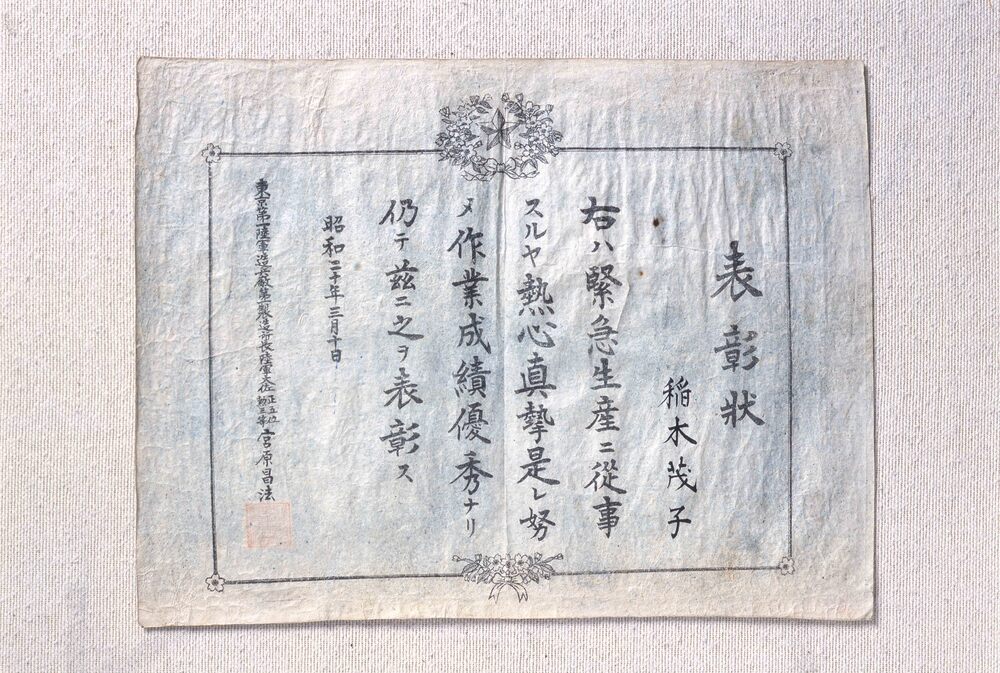 表彰狀
稲木茂子
右ハ緊急生産ニ從事
スルヤ熱心真摯是レ努
メ作業成績優秀ナリ
仍テ茲ニ之ヲ表彰ス
昭和二十年三月十日
東京第一陸軍造兵廠第一製造所長陸軍大佐正五位勲三等宮原昌法